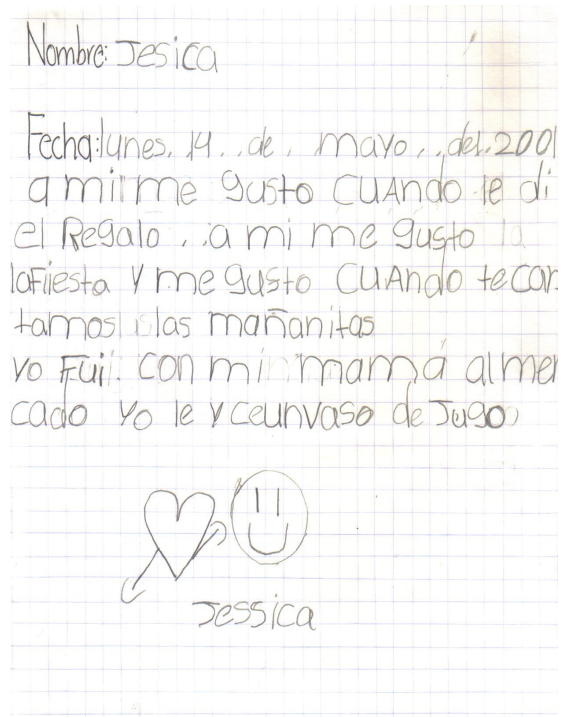 Nombre: Jesica
Fecha: lunes. 14 .. de . mayo . , del . 2001
a mi me gusto CUANdo le di
el Regalo . . a mi me gusto la
la Fiesta y me gusto CUANdo te can
tamos las mañanitas
yo Fui . con mi mamá al mer
cado yo le y ce un vaso de Jugo
Jessica